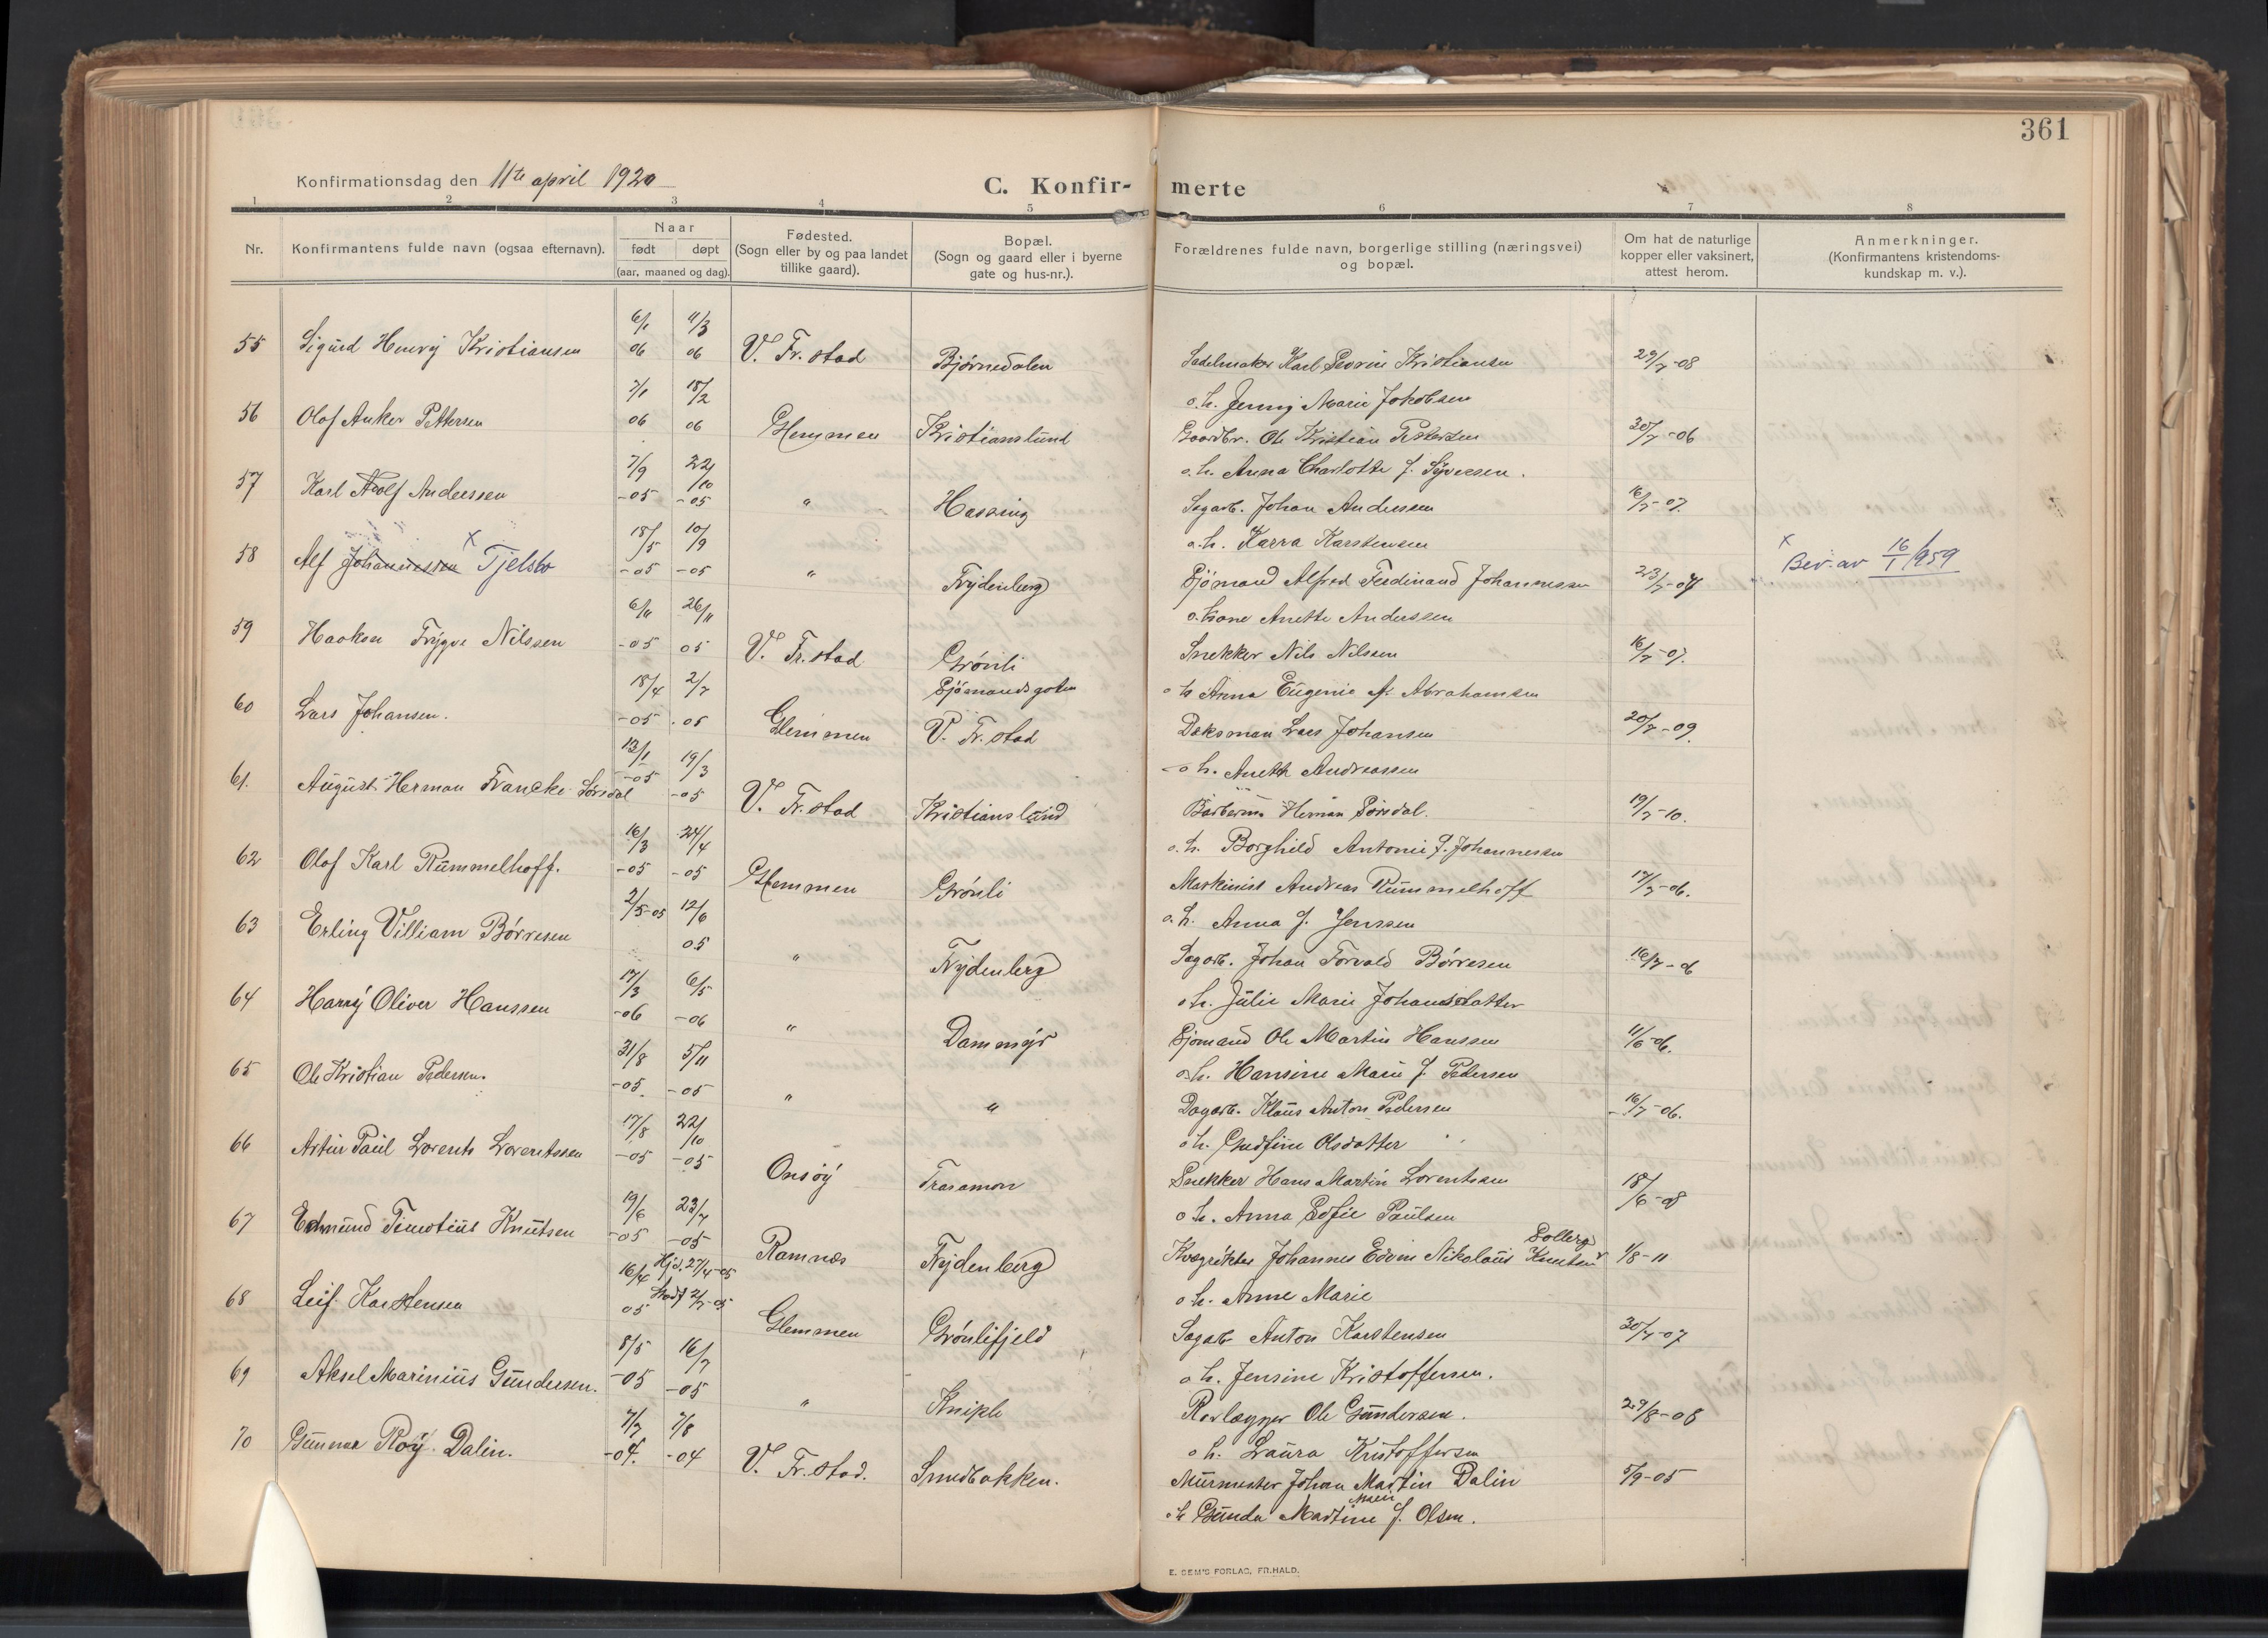 361
Konfirmationsdag den 11te april 1920
C. Konfir-
merte
1 2 3 4 5 6 7 8
Nr.
Konfirmantens fulde navn (ogsaa efternavn).
Naar
født døpt
(aar, maaned og dag).
Fødested.
(Sogn eller by og paa landet
tillike gaard).
Bopæl.
(Sogn og gaard eller i byerne
gate og hus-nr.).
Forældrenes fulde navn, borgerlige stilling (næringsvei)
og bopæl.
Om hat de naturlige
kopper eller vaksinert,
attest herom.
Anmerkninger.
(Konfirmantens kristendoms-
kundskap m. v.).
55 Sigurd Henry Kristiansen 6/1 06 11/3 06 V. Fr.stad Bjørnedalen Sadelmaker Karl Severin Kristiansen 29/7-08
o. h. Jenny Marie Jakobsen
56 Olaf Anker Pettersen 7/1 06 18/2 06 Glemmen Kristianslund Gaardbr. Ole Kristian Pettersen 30/7-06
o. h. Anna Charlotte f. Syversen.
57 Karl Adolf Anderssen 7/9 -05 22/10 -05 " Hassing Sagarb. Johan Anderssen 16/7-07.
o. h. Karra Karstensen
58 Alf Johannessen x Tjelsbo 18/5 -05 10/9 -05 " Frydenberg Sjømand Alfred Ferdinand Johannessen 23/7-07 x Bev. av 16/1 1959
o. kone Anette Anderssen
59 Haakon Trygve Nilssen 6/11 -05 26/11 05 V. Fr.stad Grønli Snekker Nils Nilssen 16/7-07.
o h Anna Eugenie f. Abrahamsen
60 Lars Johansen. 18/4 -05 2/7 -05 Glemmen Sjømandsgaten
V. Fr.stad Daksman Lars Johansen 20/7-09.
o h. Aneth Andreassen
61. August Herman Francke Sørsdal 13/1 -05 19/3 -05 V. Fr.stad Kristianslund Barberm. Herman Sørsdal. 19/7-10.
o. h. Borghild Antonie f. Johannessen
62 Olaf Karl Rummelhoff. 16/3 -05 24/4 -05 Glemmen Grønli Maskinist Andreas Rummelhoff 17/7-06.
o. h. Anna f. Jenssen
63 Erling Villiam Børresen 2/5-05 12/6 05 " Frydenberg Dagarb. Johan Torvald Børresen 16/7-06
o h. Julie Marie Johansdatter
64 Harry Oliver Hanssen 17/3 -06 6/5 -06 " Dammyr Sjømand Ole Martin Hanssen 11/6-06.
o. h. Hansine Marie f. Pedersen
65 Ole Kristian Pedersen. 31/8 -05. 5/11 -05 " " Dagarb. Klaus Anton Pedersen 16/7-06.
o h. Gudfine Olsdatter
66 Artur Paul Lorents Lorentssen 17/8 -05 22/10 -05 Onsøy Trasamon Snekker Hans Martin Lorentssen 18/6-08
o h. Anna Sofie Paulsen
67 Edmund Timotius Knutsen 19/6 -05 23/7 -05 Ramnæs Frydenberg Kvægrøkter Johannes Edvin Nikolaus Knutsen Solberg 1/8-11
o h. Anne Marie
68 Leif Karstensen 16/4 05 Hjd. 27/4-05 Stadf 2/7-05 Glemmen Grønlifjeld Sagarb Anton Karstensen 30/7-07
o h. Jensine Kristoffersen.
69 Aksel Marinius Gundersen. 8/5 -05 16/7 -05 " Kniple Rørlægger Ole Gundersen. 29/8-08
o h. Laura Kristoffersen
70 Gunnar Roy Dalin. 7/7 -04. 7/8 -04 V. Fr.stad. Smedbakken. Murmester Johan Martin Dalin 5/9-05
o h Gunda Martine Marie f. Olsen.
E. SEM'S FORLAG, FR.HALD.